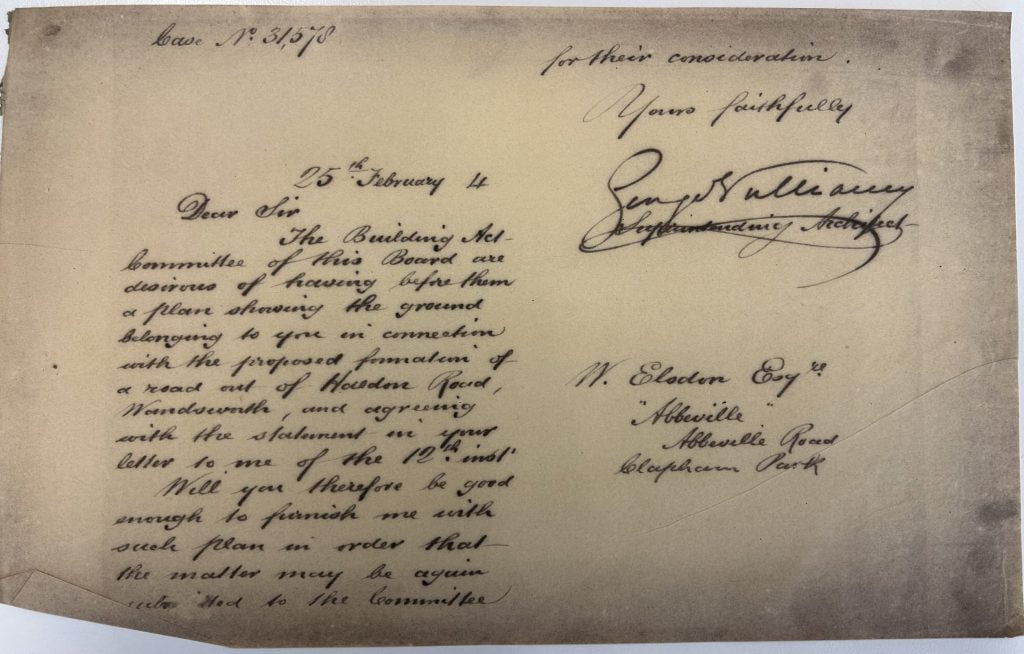 Case No. 31,578
25th February 4
Dear Sir
The Building Act
Committee of this Board are
desirous of having before them
a plan showing the ground
belonging to you in connection
with the proposed formation of
a road out of Haldon Road,
Wandsworth, and agreeing
with the statement in your
letter to me of the 12th inst'
Will you therefore be good
enough to furnish me with
such plan in order that
the matter may be again
to the Committee
for their consideration.
Yours faithfully
George Vulliamy
Superintending Architect
W. Elsdon Esqre
"Abbeville"
Abbeville Road
Clapham Park